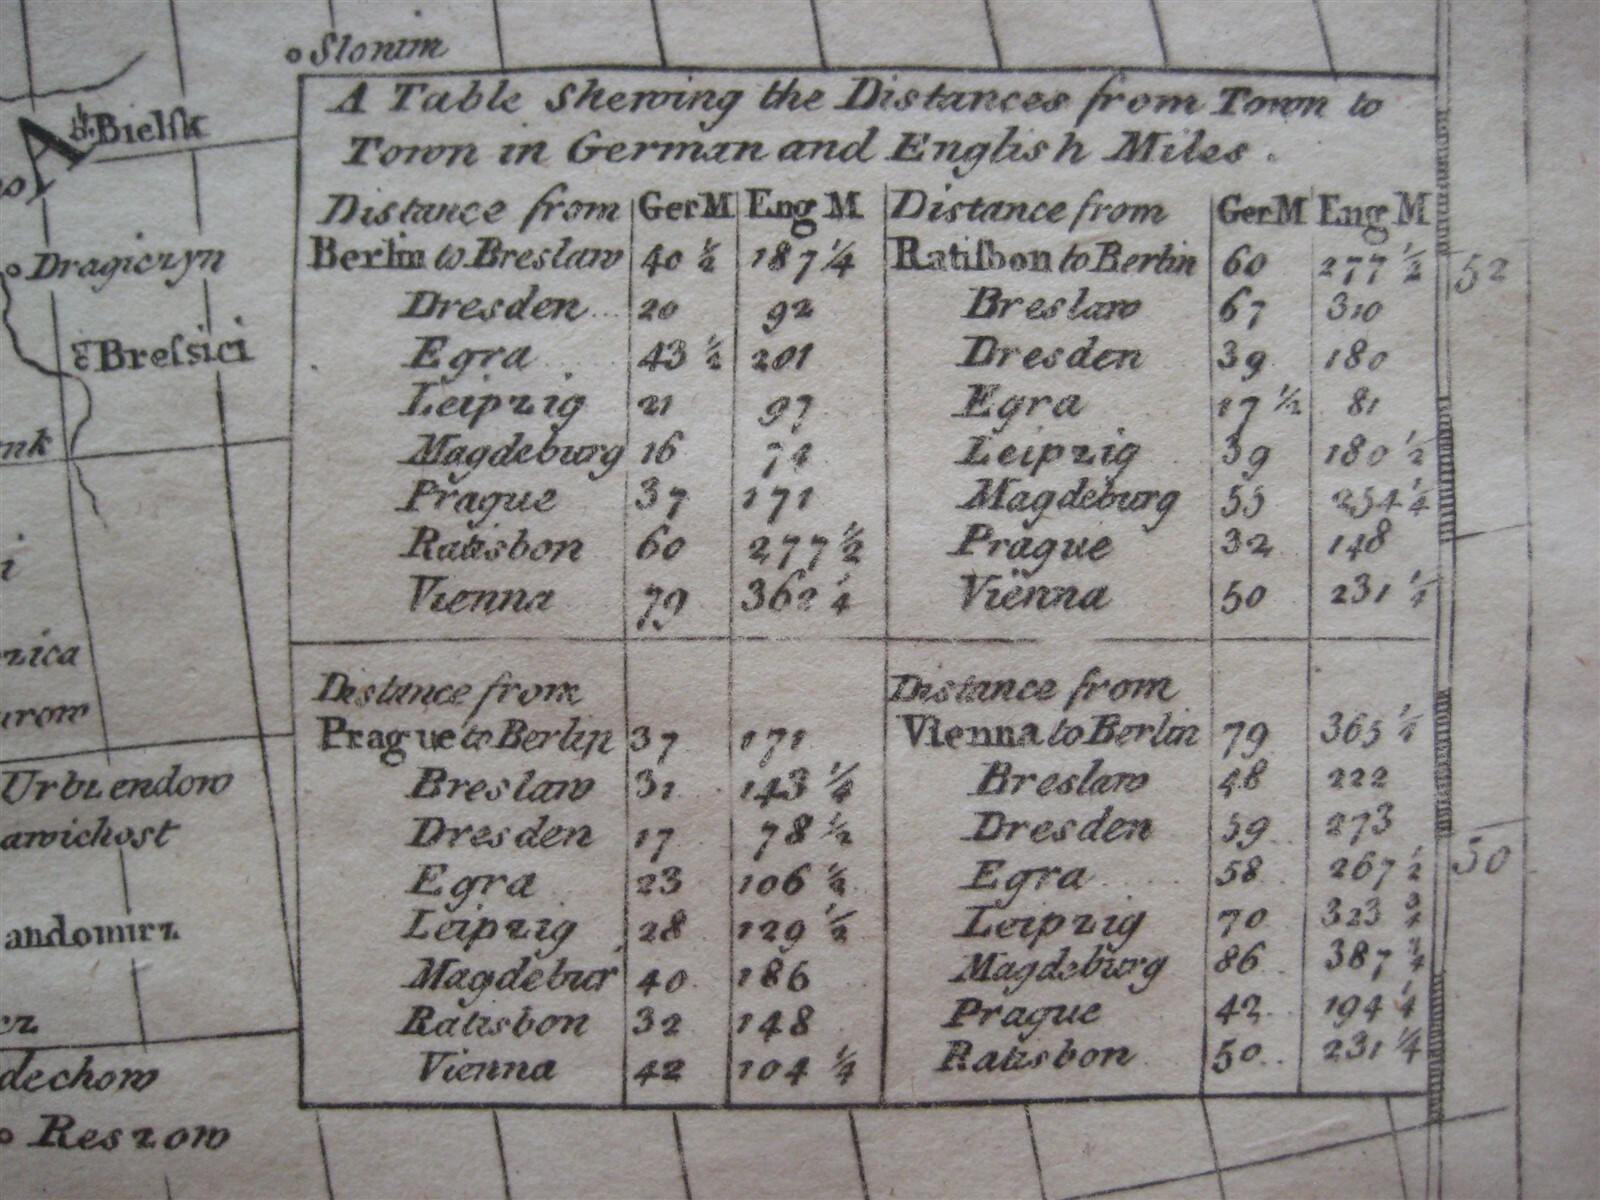 Slonim
A Table Shewing the Distances from Town to
Town in German and English Miles.
Distance from GerM Eng M
Berlin to Breslaw 40 ½ 187 ¼
Dresden 20 92
Egra 43 ½ 201
Leipzig 21 97
Magdeburg 16 74
Prague 37 171
Ratisbon 60 277 ½
Vienna 79 362 ¼
Distance from GerM Eng M
Ratiſbon to Berlin 60 277 ½
Breslaw 67 310
Dresden 39 180
Egra 17 ½ 81
Leipzig 39 180 ½
Magdeburg 55 254 ¼
Prague 32 148
Viënna 50 231 ¼
Distance from
Prague to Berlin 37 171
Breslaw 31 143 ¼
Dresden 17 78 ½
Egra 23 106 ½
Leipzig 28 129 ½
Magdebur 40 186
Ratisbon 32 148
Vienna 42 104 ¼
Distance from
Vienna to Berlin 79 365 ¼
Breslaw 48 222
Dresden 59 273
Egra 58 267 ½
Leipzig 70 323 ¾
Magdeburg 86 387 ¾
Prague 42 194 ¼
Ratisbon 50 231 ¼
A
Bielſk
Dragiczyn
Breſsici
nk
zica
urow
Urbiendow
awichost
andomirz
dechow
Reszow
52
50